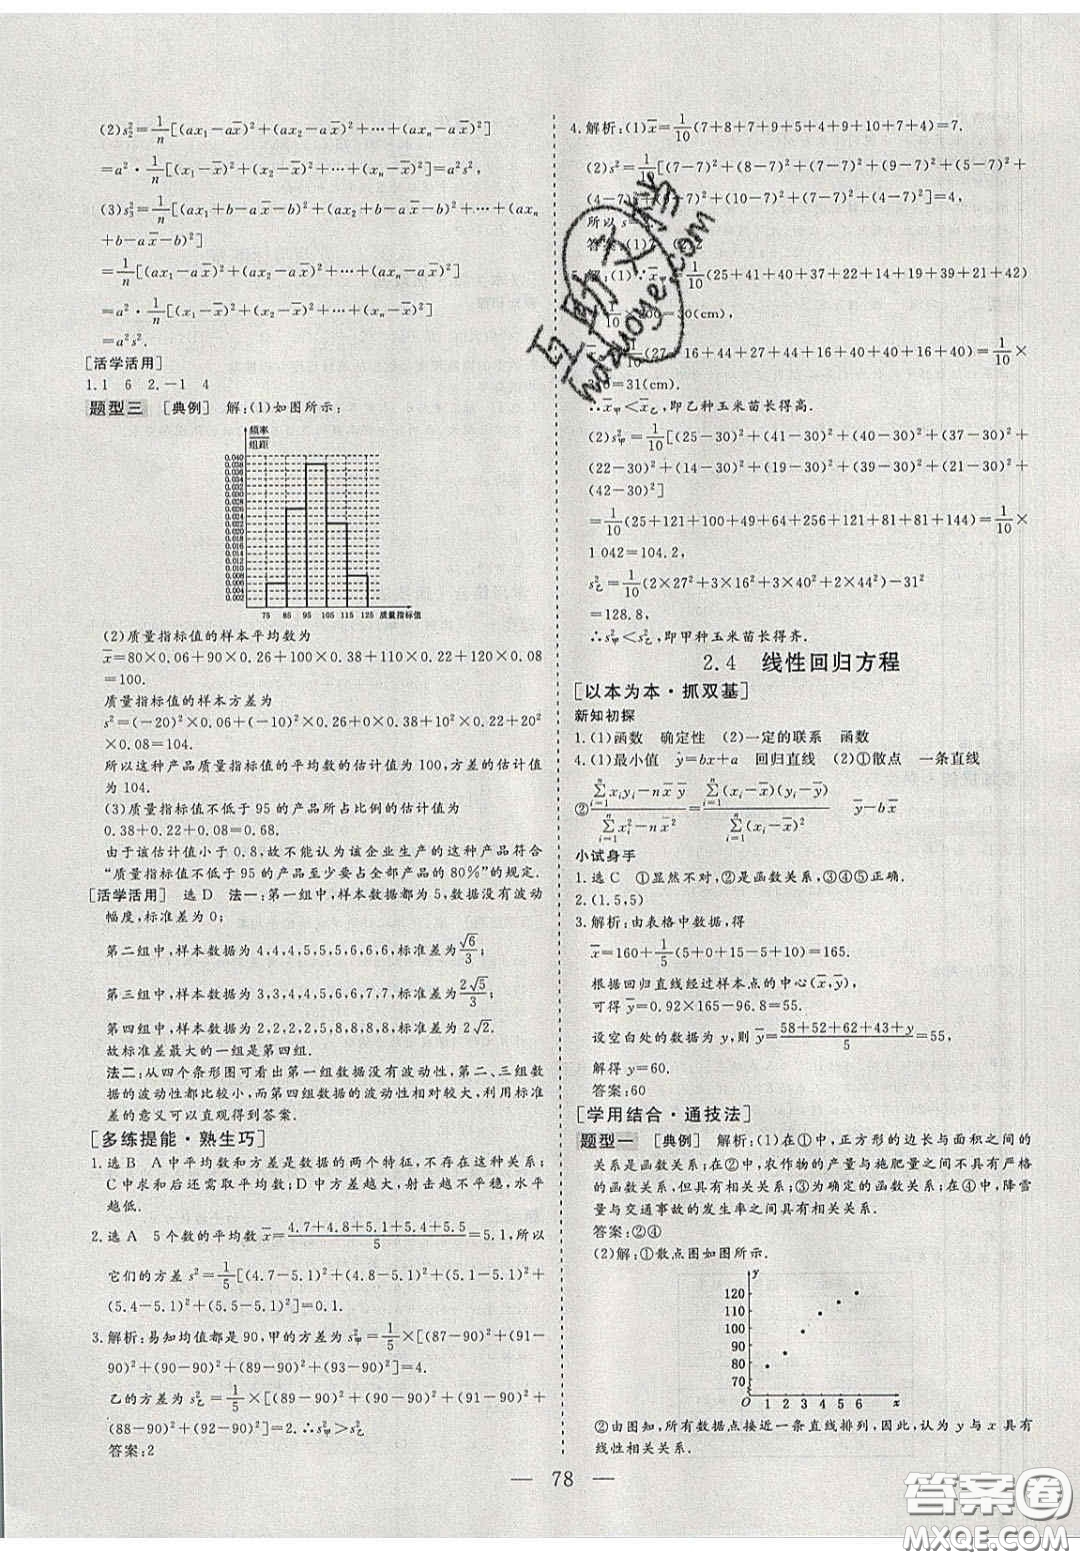 (2)s₂²=1/n[(ax₁−ax̄)²+(ax₂−ax̄)²+⋯+(axₙ−ax̄)²]
=a²·1/n[(x₁−x̄)²+(x₂−x̄)²+⋯+(xₙ−x̄)²]=a²s²,
(3)s₃²=1/n[(ax₁+b−ax̄−b)²+(ax₂+b−ax̄−b)²+⋯+(axₙ
+b−ax̄−b)²]
=1/n[(ax₁−ax̄)²+(ax₂−ax̄)²+⋯+(axₙ−ax̄)²]
=a²·1/n[(x₁−x̄)²+(x₂−x̄)²+⋯+(xₙ−x̄)²]
=a²s².
[活学活用]
1.1 6 2.−1 4
题型三 [典例] 解:(1)如图所示:
频率
组距
0.040
0.038
0.036
0.034
0.032
0.030
0.028
0.026
0.024
0.022
0.020
0.018
0.016
0.014
0.012
0.010
0.008
0.006
0.004
0.002
75 85 95 105 115 125 质量指标值
(2)质量指标值的样本平均数为
x̄=80×0.06+90×0.26+100×0.38+110×0.22+120×0.08=
100.
质量指标值的样本方差为
s²=(−20)²×0.06+(−10)²×0.26+0×0.38+10²×0.22+
20²×0.08=104.
所以这种产品质量指标值的平均数的估计值为100,方差的估计值
为104.
(3)质量指标值不低于95的产品所占比例的估计值为
0.38+0.22+0.08=0.68.
由于该估计值小于0.8,故不能认为该企业生产的这种产品符合
“质量指标值不低于95的产品至少要占全部产品的80%”的规定.
[活学活用] 选D 法一:第一组中,样本数据都为5,数据没有波动
幅度,标准差为0;
第二组中,样本数据为4,4,4,5,5,5,6,6,6,标准差为√6/3;
第三组中,样本数据为3,3,4,4,5,6,6,7,7,标准差为2√5/3;
第四组中,样本数据为2,2,2,2,5,8,8,8,8,标准差为2√2.
故标准差最大的一组是第四组.
法二:从四个条形图可看出第一组数据没有波动性,第二、三组数
据的波动性都比较小,而第四组数据的波动性相对较大,利用标准
差的意义可以直观得到答案.
[多练提能·熟生巧]
1.选B A中平均数和方差是数据的两个特征,不存在这种关系;
C中求和后还需取平均数;D中方差越大,射击越不平稳,水平
越低.
2.选A 5个数的平均数x̄=(4.7+4.8+5.1+5.4+5.5)/5=5.1,所以
它们的方差s²=1/5[(4.7−5.1)²+(4.8−5.1)²+(5.1−5.1)²+
(5.4−5.1)²+(5.5−5.1)²]=0.1.
3.解析:易知均值都是90,甲的方差为s甲²=1/5×[(87−90)²+(91−
90)²+(90−90)²+(89−90)²+(93−90)²]=4.
乙的方差为s乙²=1/5×[(89−90)²+(90−90)²+(91−90)²+
(88−90)²+(92−90)²]=2.∴s甲²>s乙²
答案:2
4.解析:(1)x̄=1/10(7+8+7+9+5+4+9+10+7+4)=7.
(2)s²=1/10[(7−7)²+(8−7)²+(7−7)²+(9−7)²+(5−7)²+
(4−7)²+(9−7)²+(10−7)²+(7−7)²+(4−7)²]=4,
所以s=
答案:(1)7 (2)2
5.解:(1)∵x̄甲=1/10(25+41+40+37+22+14+19+39+21+42)
=1/10×300=30(cm)
x̄乙=1/10(27+16+44+27+44+16+40+40+16+40)=1/10×
310=31(cm).
∴x̄甲<x̄乙,即乙种玉米苗长得高.
(2)s甲²=1/10[(25−30)²+(41−30)²+(40−30)²+(37−30)²+
(22−30)²+(14−30)²+(19−30)²+(39−30)²+(21−30)²+
(42−30)²]
=1/10(25+121+100+49+64+256+121+81+81+144)=1/10×
1 042=104.2,
s乙²=1/10(2×27²+3×16²+3×40²+2×44²)−31²
=128.8,
∴s甲²<s乙²,即甲种玉米苗长得齐.
2.4 线性回归方程
[以本为本·抓双基]
新知初探
1.(1)函数 确定性 (2)一定的联系 函数
4.(1)最小值 ŷ=bx+a 回归直线 (2)①散点 一条直线
②(∑ⁿᵢ₌₁xᵢyᵢ−nx̄ȳ)/(∑ⁿᵢ₌₁xᵢ²−nx̄²)=(∑ⁿᵢ₌₁(xᵢ−x̄)(yᵢ−ȳ))/(∑ⁿᵢ₌₁(xᵢ−x̄)²) ȳ−bx̄
小试身手
1.选C ①显然不对,②是函数关系,③④⑤正确.
2.(1.5,5)
3.解析:由表格中数据,得
x̄=160+1/5(5+0+15−5+10)=165.
根据回归直线经过样本点的中心(x̄,ȳ),
可得ȳ=0.92×165−96.8=55.
设空白处的数据为y,则ȳ=(58+52+62+43+y)/5=55,
解得y=60.
答案:60
[学用结合·通技法]
题型一 [典例] 解析:(1)在①中,正方形的边长与面积之间的
关系是函数关系;在②中,农作物的产量与施肥量之间不具有严格
的函数关系,但具有相关关系;③为确定的函数关系;在④中,降雪
量与交通事故的发生率之间具有相关关系.
答案:②④
(2)解:①散点图如图所示.
y
120
110
100
90
80
70
O 1 2 3 4 5 6 x
②由图知,所有数据点接近一条直线排列,因此,认为y与x具有
线性相关关系.
— 78 —
互助文档
hdzuoye.com
答案圈
MXQE.COM